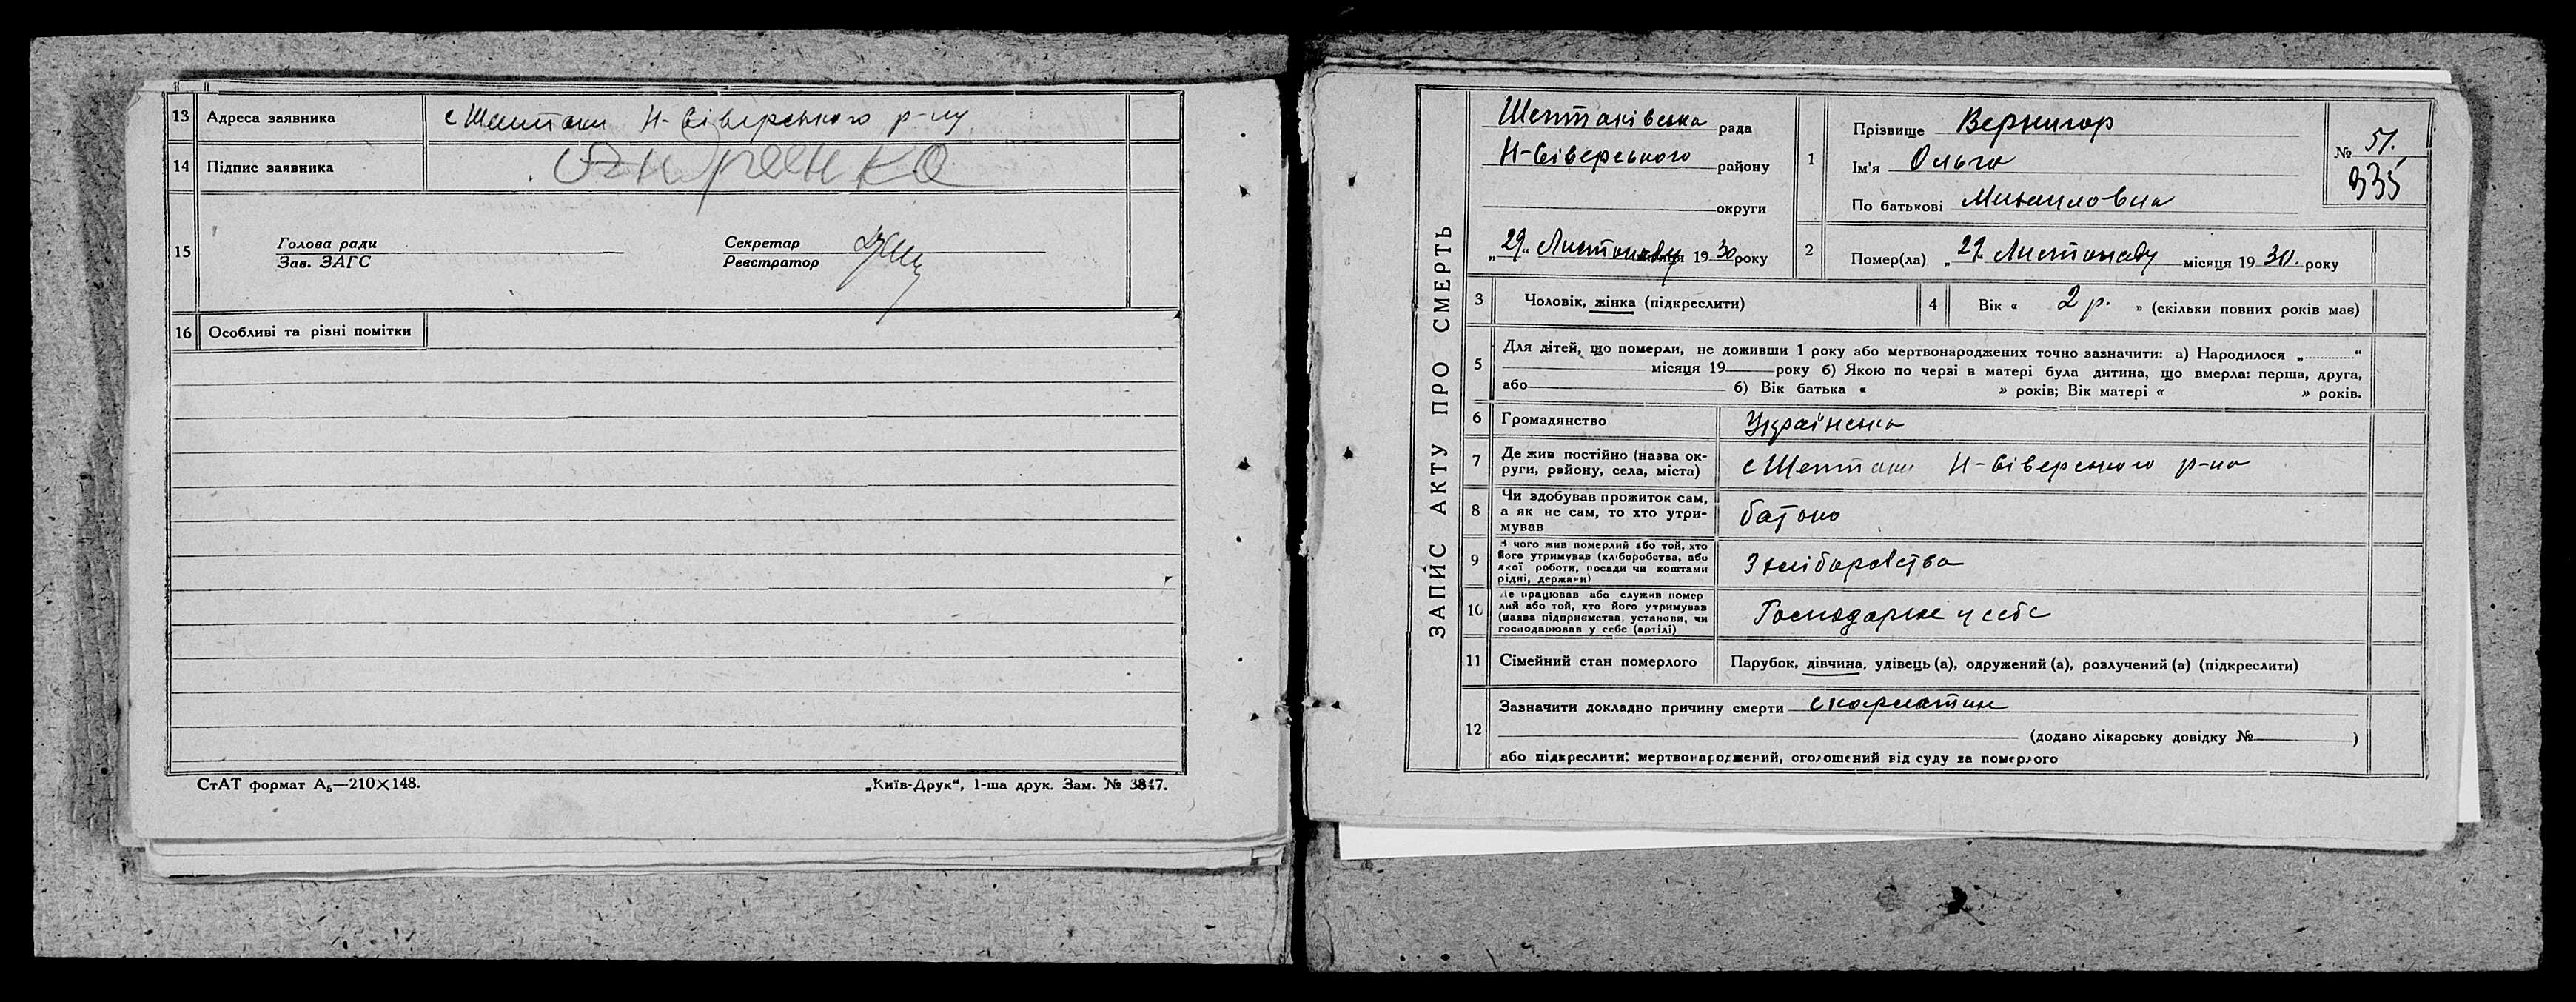 13 Адреса заявника с Шептаки Н-Сіверського р-ну
14 Підпис заявника
15 Голова ради
Зав. ЗАГС
Секретар
Реєстратор
16 Особливі та різні помітки
СтАТ формат А₅—210×148.
„Київ-Друк“, 1-ша друк. Зам. № 3847.
ЗАПИС АКТУ ПРО СМЕРТЬ
Шептаківська рада
Н-Сіверського району
округи
„29“ Листопаду місяця 1930 року
1 Прізвище Вернигор
Ім'я Ольга
По батькові Михаиловна
№ 51.
935
2 Помер(ла) „29“ Листопаду місяця 1930. року
3 Чоловік, жінка (підкреслити)
4 Вік « 2 р. » (скільки повних років має)
5 Для дітей, що померли, не доживши 1 року або мертвонароджених точно зазначити: а) Народилося „............“
місяця 19 року б) Якою по черзі в матері була дитина, що вмерла: перша, друга,
або б) Вік батька « » років; Вік матері « » років.
6 Громадянство Українська
7 Де жив постійно (назва ок-
руги, району, села, міста) с Шептаки Н-Сіверського р-на
8 Чи здобував прожиток сам,
а як не сам, то хто утри-
мував батько
9 З чого жив померлий або той, хто
його утримував (хліборобства, або
якої роботи, посади чи коштами
рідні, держави) З хліборобства
10 Де працював або служив помер
лий або той, хто його утримував
(назва підприємства, установи, чи
господарював у себе (артілі) Господарює у себе
11 Сімейний стан померлого Парубок, дівчина, удівець (а), одружений (а), розлучений (а) (підкреслити)
12 Зазначити докладно причину смерти скарлатин
(додано лікарську довідку № )
або підкреслити: мертвонароджений, оголошений від суду за померлого